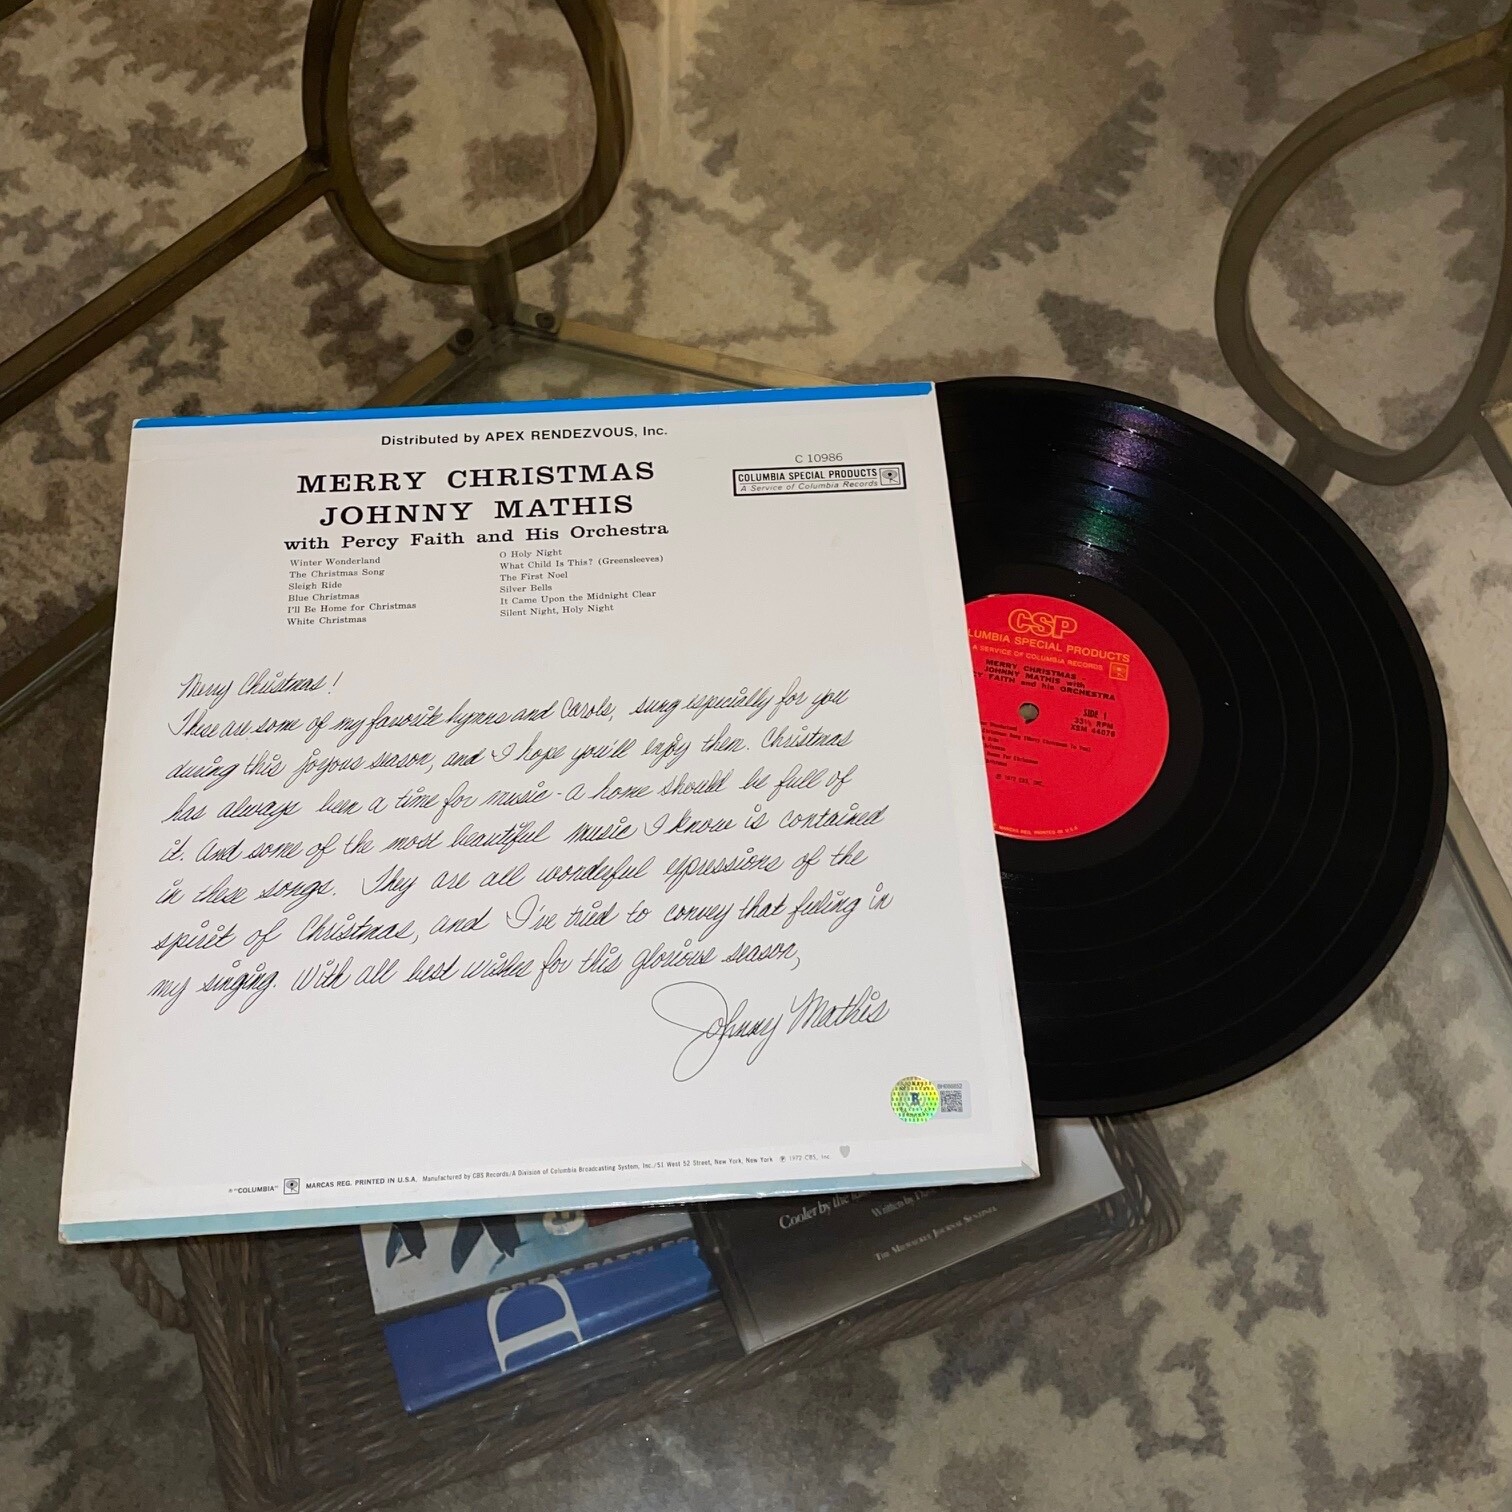 Distributed by APEX RENDEZVOUS, Inc.
MERRY CHRISTMAS
JOHNNY MATHIS
with Percy Faith and His Orchestra
C 10986
COLUMBIA SPECIAL PRODUCTS
A Service of Columbia Records
Winter Wonderland
The Christmas Song
Sleigh Ride
Blue Christmas
I'll Be Home for Christmas
White Christmas
O Holy Night
What Child Is This? (Greensleeves)
The First Noel
Silver Bells
It Came Upon the Midnight Clear
Silent Night, Holy Night
Merry Christmas!
These are some of my favorite hymns and Carols, sung especially for you
during this joyous season, and I hope you'll enjoy them. Christmas
has always been a time for music - a home should be full of
it. And some of the most beautiful music I know is contained
in these songs. They are all wonderful expressions of the
spirit of Christmas, and I've tried to convey that feeling in
my singing. With all best wishes for this glorious season,
Johnny Mathis
® "COLUMBIA" MARCAS REG. PRINTED IN U.S.A. Manufactured by CBS Records/A Division of Columbia Broadcasting System, Inc./51 West 52 Street, New York, New York ℗ 1972 CBS, Inc.
CSP
LUMBIA SPECIAL PRODUCTS
A SERVICE OF COLUMBIA RECORDS
MERRY CHRISTMAS
JOHNNY MATHIS with
Y FAITH and his ORCHESTRA
SIDE 1
33⅓ RPM
XSM 44076
℗ 1972 CBS, INC.
MARCAS REG. PRINTED IN U.S.A.
GREAT BATTLES
D
Cooler by the
Written by
THE MILWAUKEE JOURNAL SENTINEL